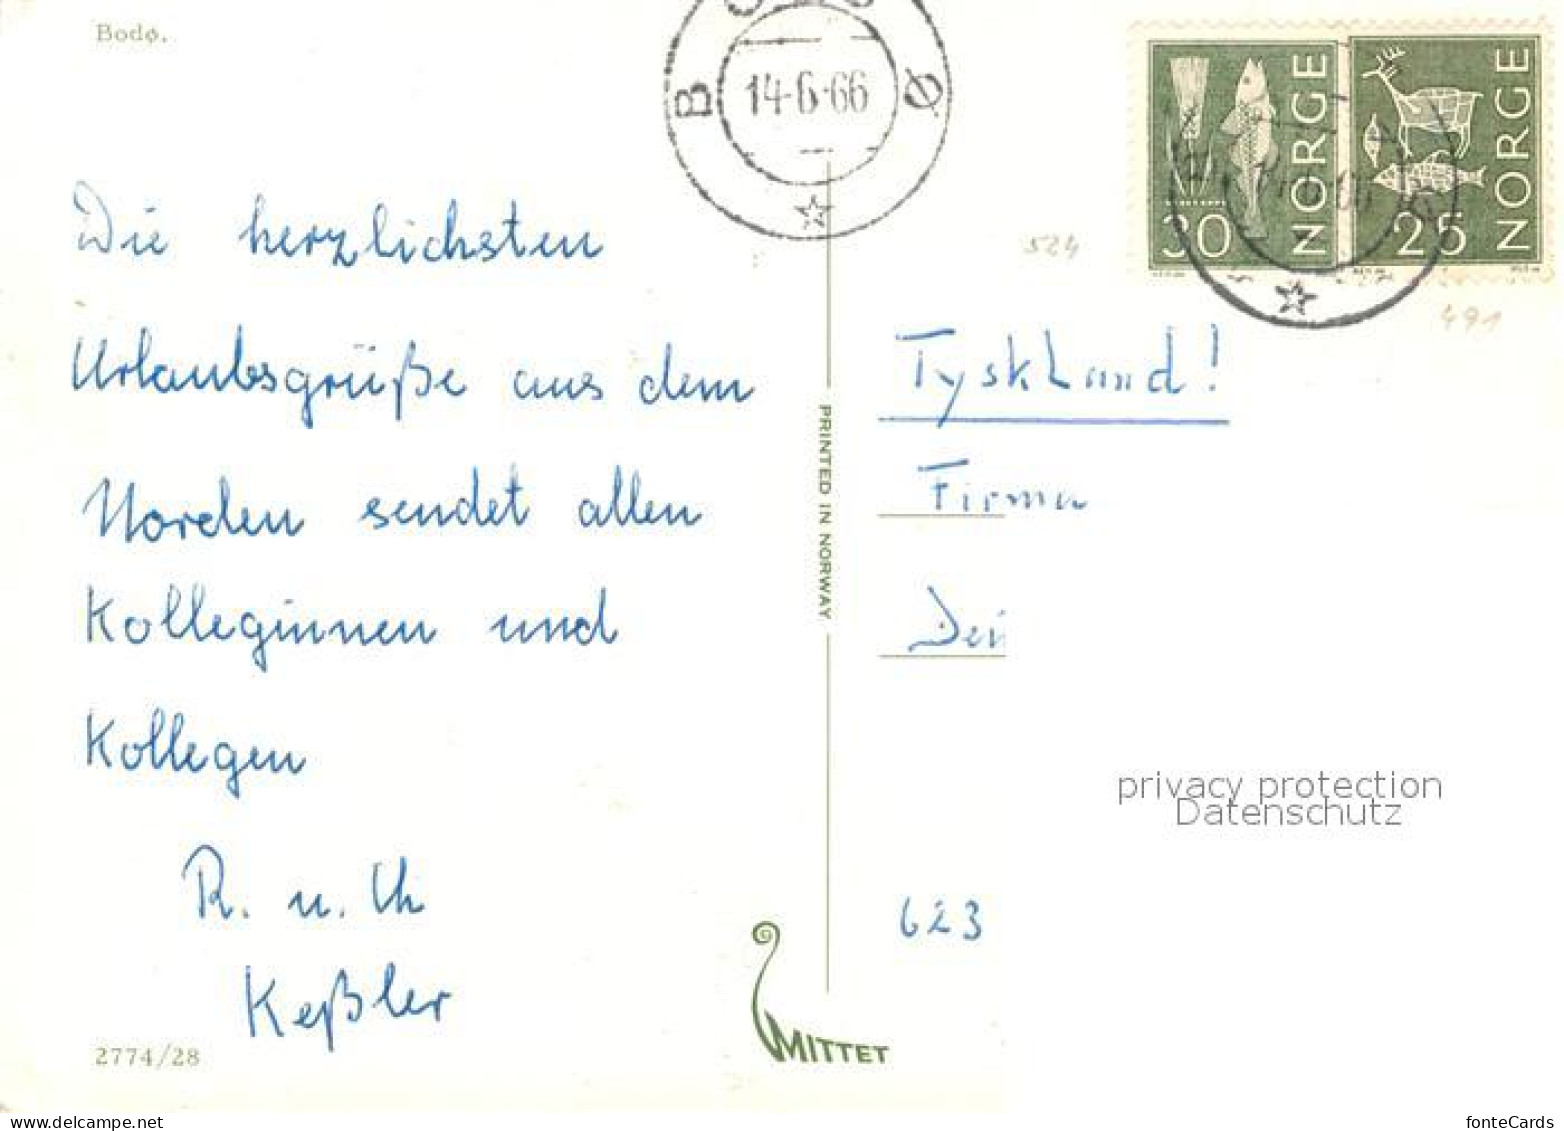 Bodø.
BODØ
14-6-66
30 NORGE
25 NORGE
524
491
Die herzlichsten
Urlaubsgrüße aus dem
Norden sendet allen
Kolleginnen und
Kollegen
R. u. Ch
Keßler
2774/28
PRINTED IN NORWAY
MITTET
Tyskland!
Firma
623
privacy protection
Datenschutz
www.delcampe.net
fonteCards